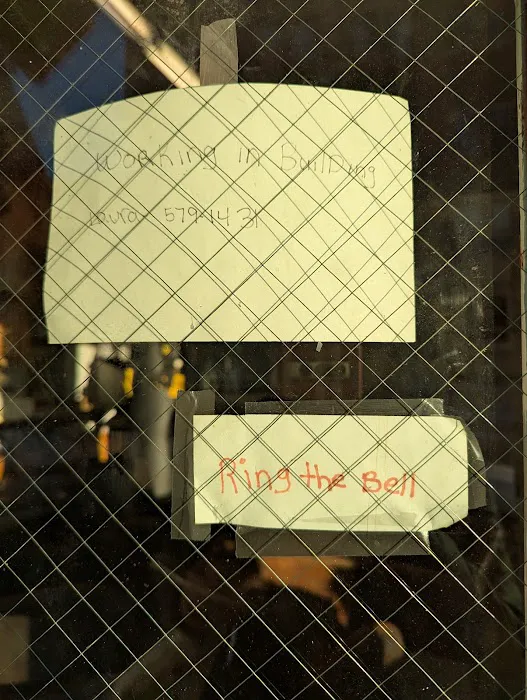 Working in Building
Laura 579-1431
Ring the Bell